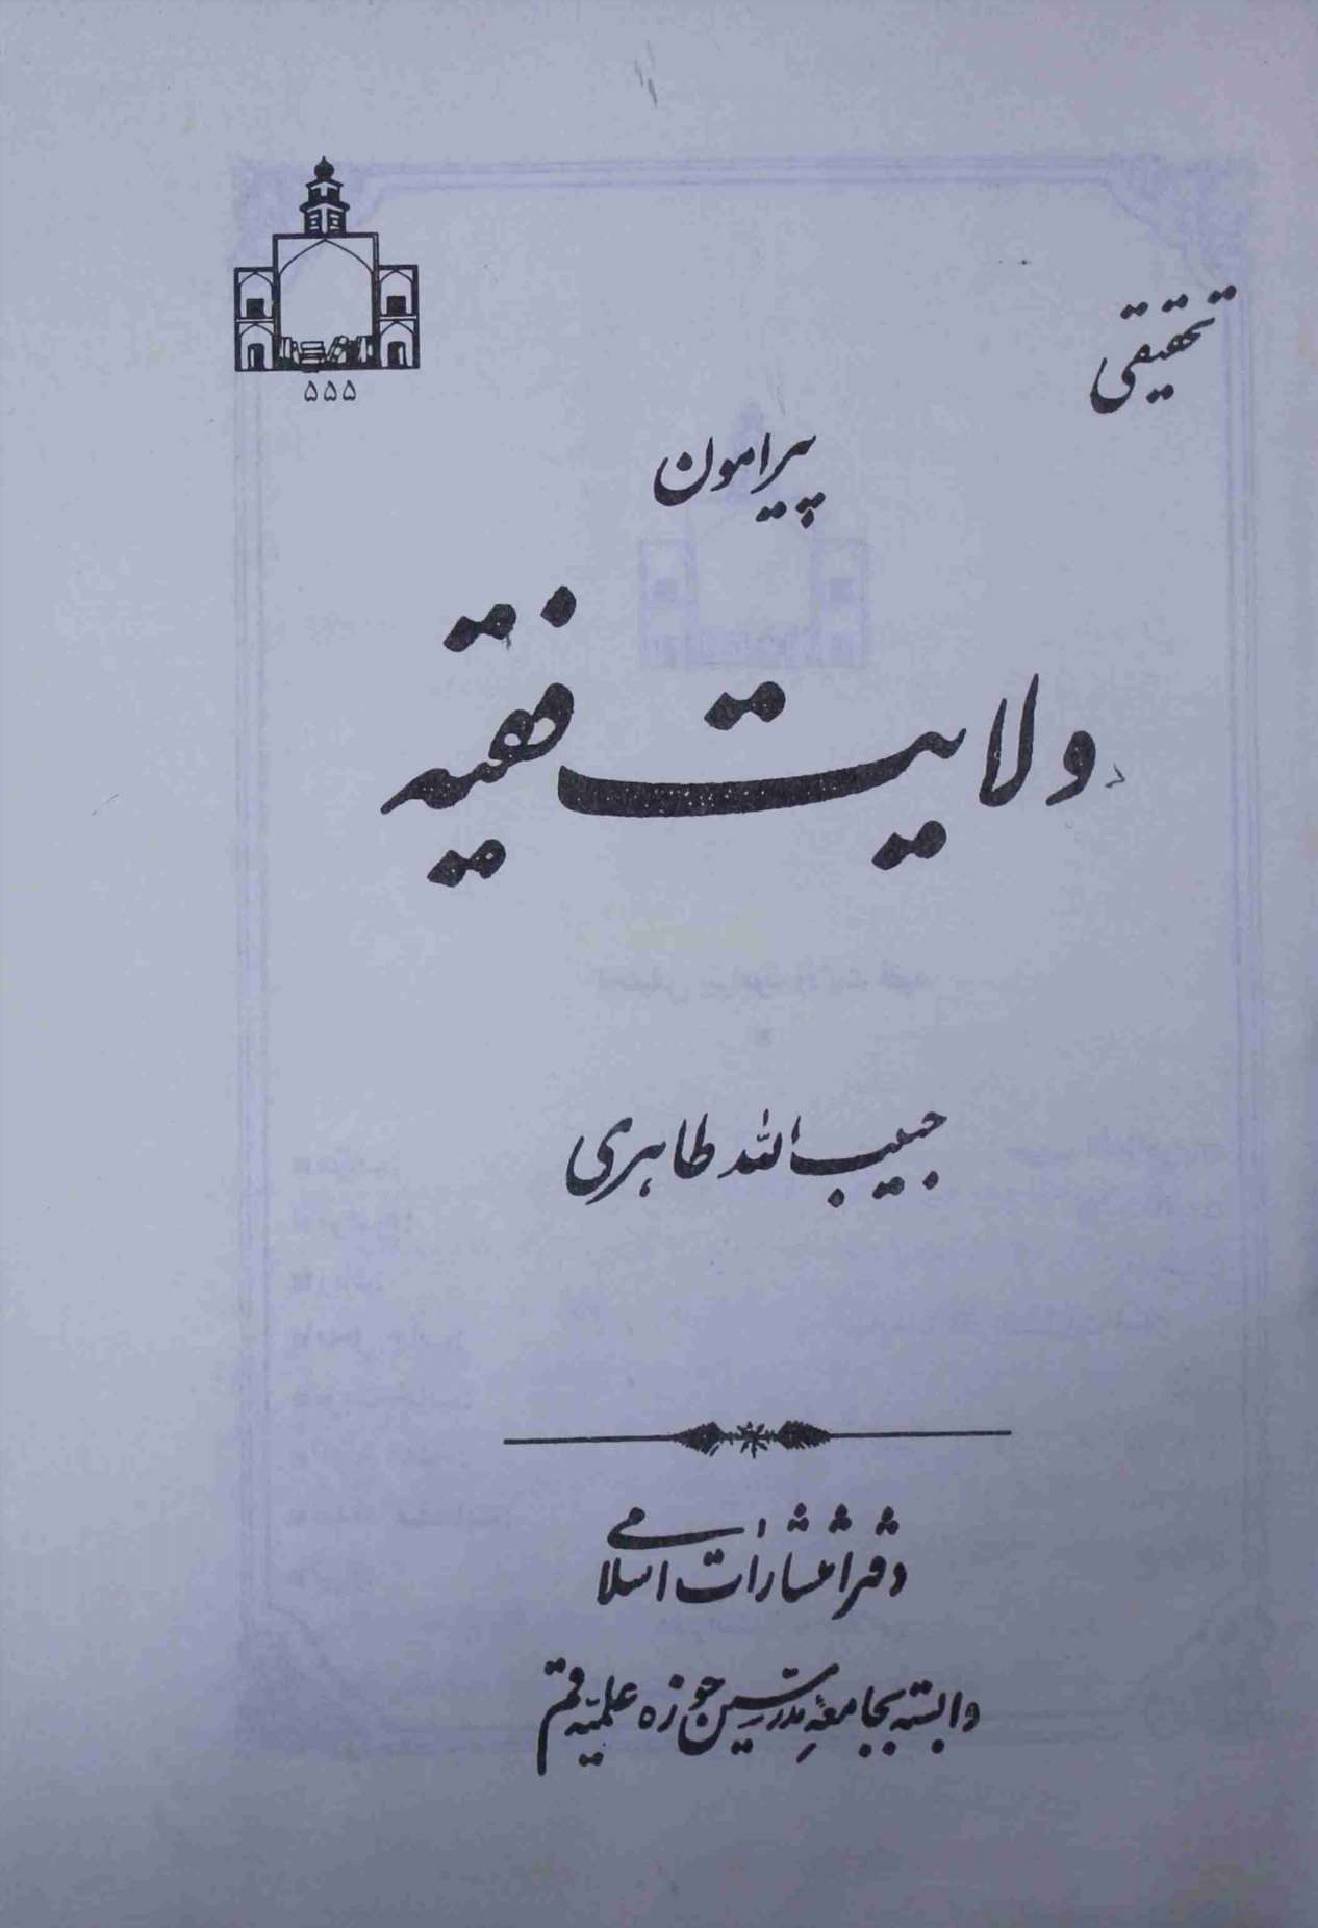 ۵۵۵
تحقیقی
پیرامون
ولایت فقیه
حبیب الله طاهری
دفتر انتشارات اسلامی
وابسته بجامعهٔ مدرسین حوزه علمیّه قم